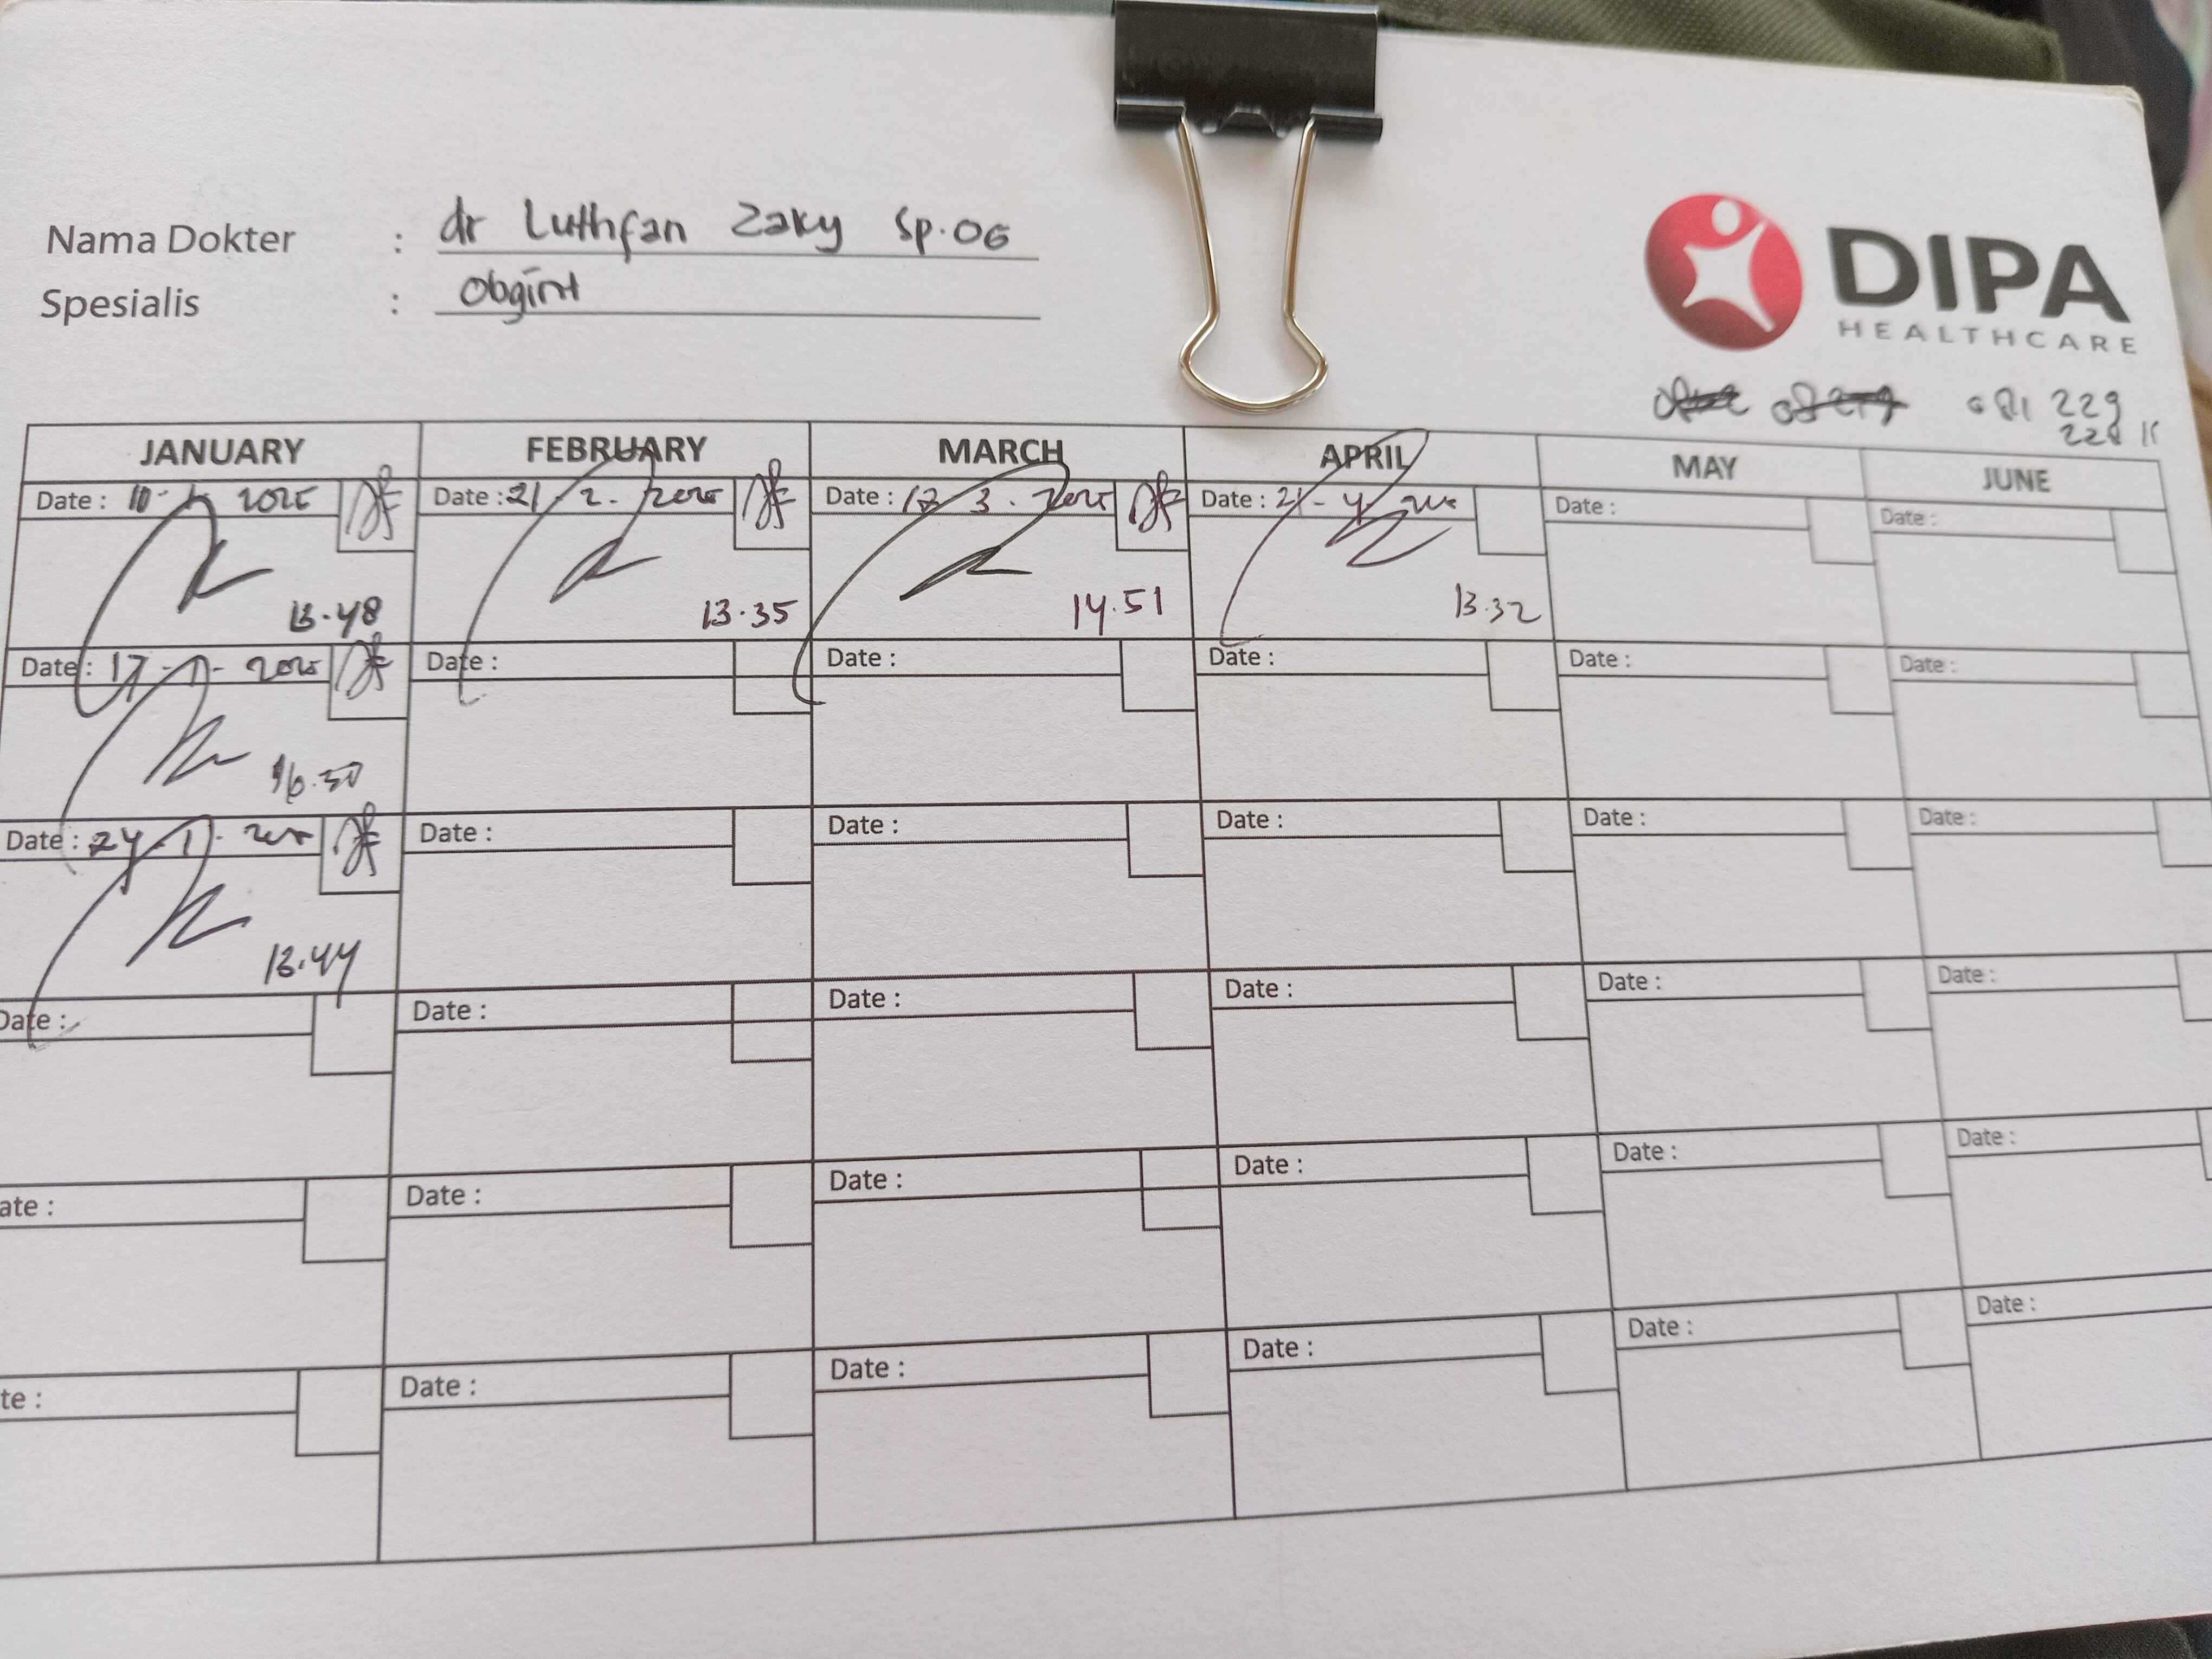 Nama Dokter : dr Luthfan Zaky Sp.OG
Spesialis : Obgin
DIPA
HEALTHCARE
081 229
228 11
JANUARY FEBRUARY MARCH APRIL MAY JUNE
Date : 10-1-2025 Date : 21-2-2025 Date : 3-2025 Date : 21-4- Date : Date :
13.48 13.35 14.51 13.32
Date : 17-1-2025 Date : Date : Date : Date : Date :
16.50
Date : 24-1- Date : Date : Date : Date : Date :
13.44
Date : Date : Date : Date : Date : Date :
ate : Date : Date : Date : Date : Date :
te : Date : Date : Date : Date : Date :